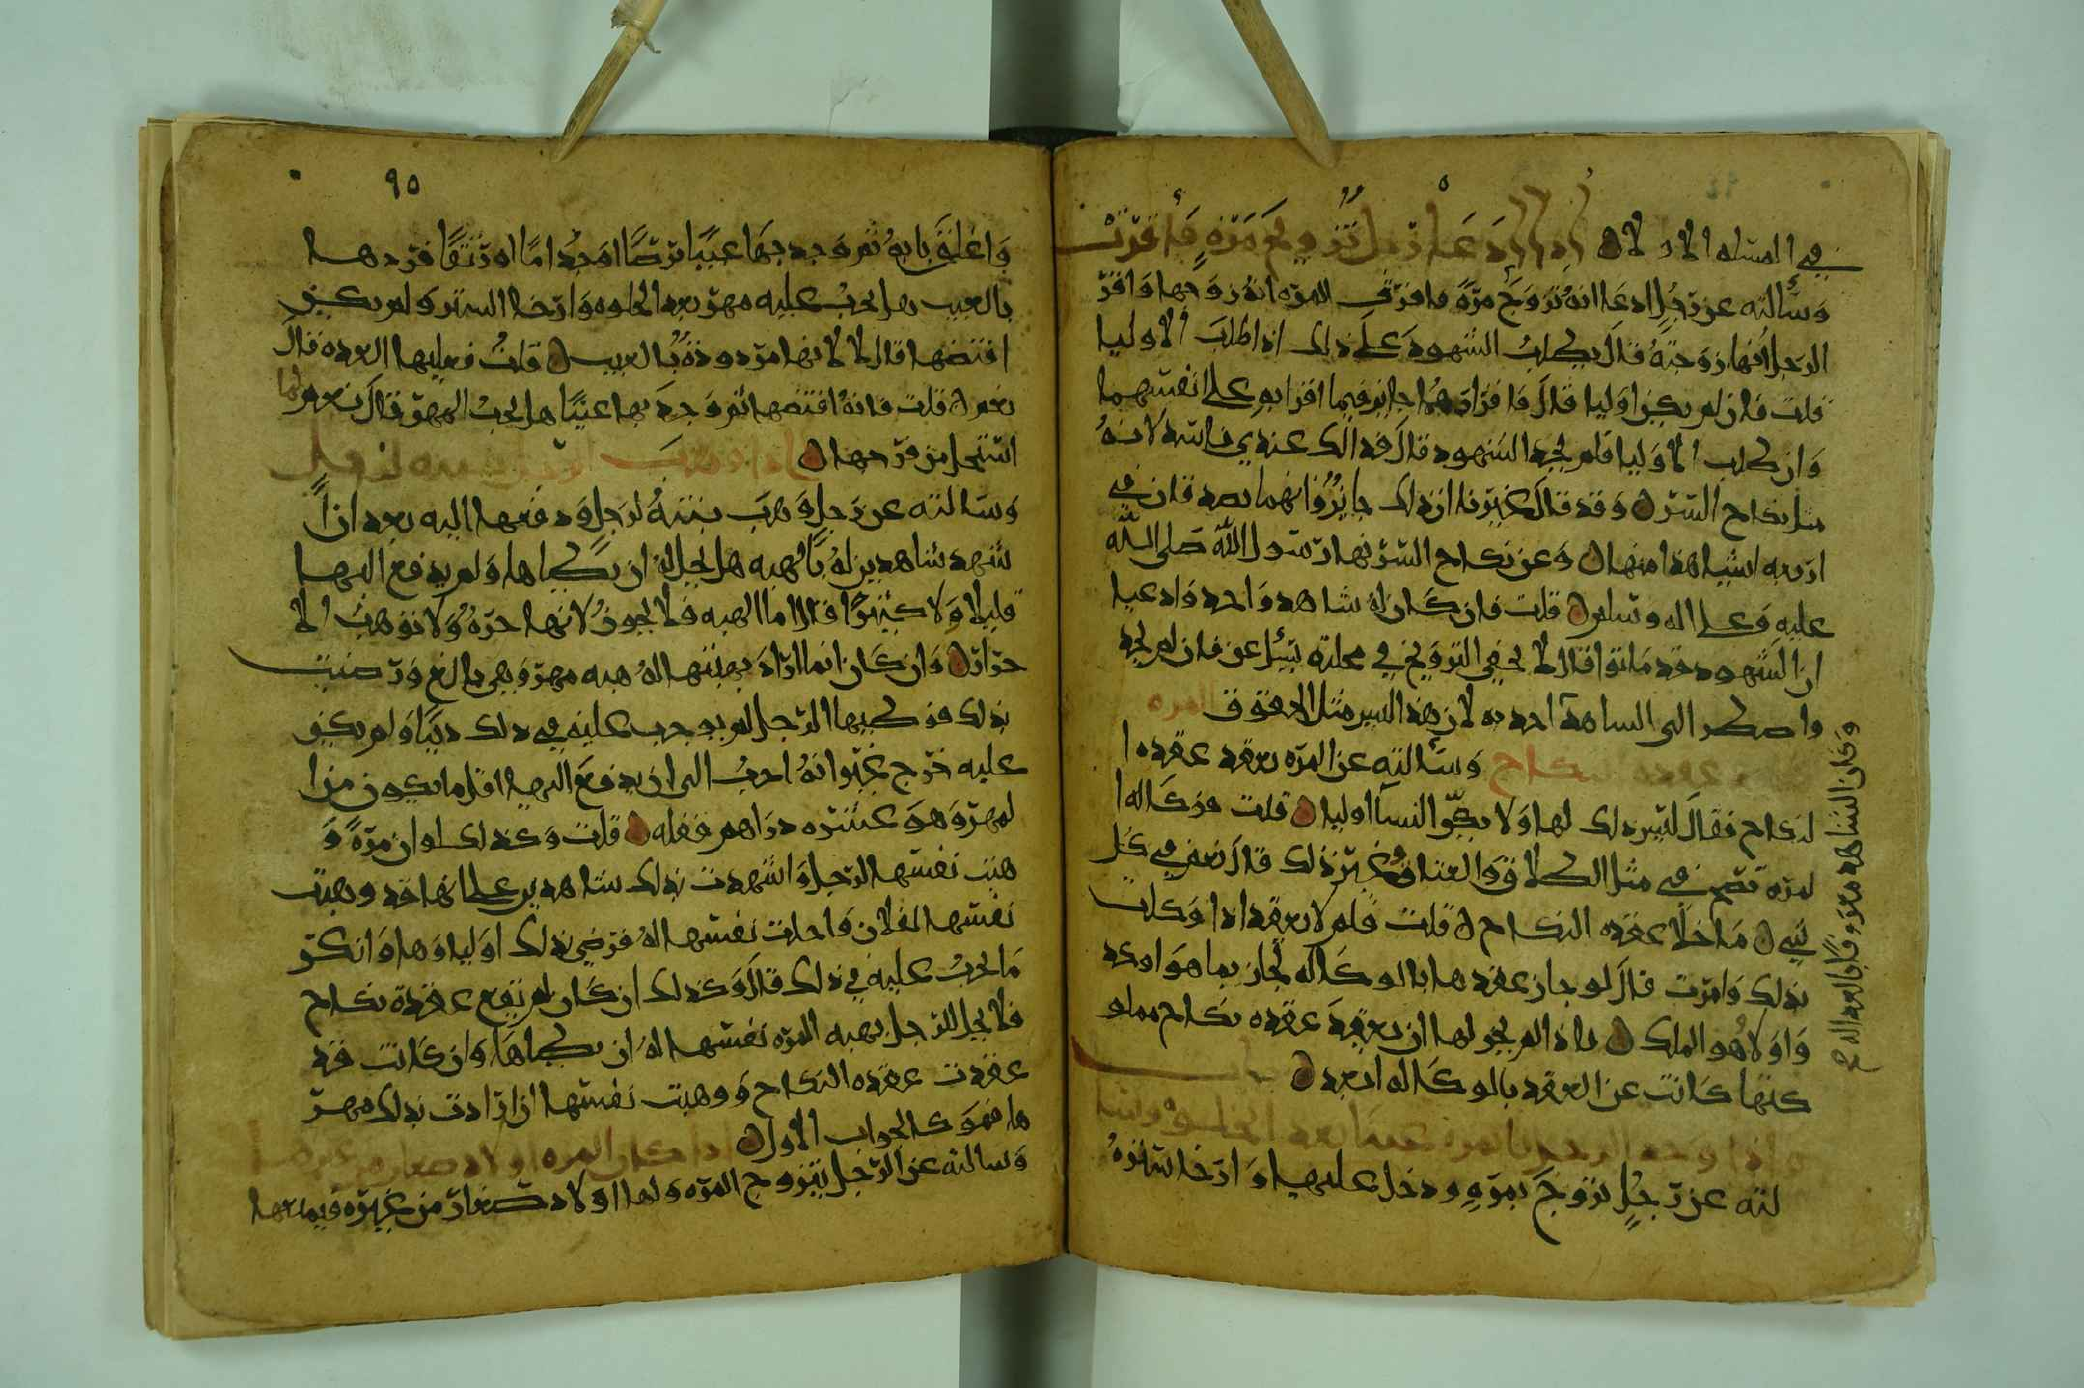 في المسله الاولان اذا ادعا رجل تزويج مرة فاقرت
وسالته عن رجل ادعا انه تزوج مرة فاقرت المره انه زوجها واقر
الرجل انها زوجته قال يطلب الشهود على ذلك اذا طلب الاوليا
قلت فان لم يكن اوليا قال فاقرارهما جايز فيما اقرا به على انفسهما
وان طلب الاوليا فلم يجد الشهود قال فذالك عندي فاسد لانه
مثل نكاح السر وقد قال غيرنا ان ذلك جايز وانهما يصدقان في
اربعه اشيا هذا منها وعن نكاح السر نها رسول الله صلى الله
عليه وعلى اله وسلم قلت فان كان له شاهد واحد وادعيا
ان الشهود قد ماتوا قال لا يخفى التزويج في محلته يسئل عن فان لم يجد
واضطر الى الشاهد اخذ به لان هذا ليس مثل الحقوق المره
عقده النكاح وسالته عن المره تعقد عقده ا
لنكاح فقال ليس ذلك لها ولا يكن النسا اوليا قلت فوكاله ا
لمره تصح في مثل الطلاق والعتاق وغير ذلك قال نعم في كل
شي ما خلا عقده النكاح قلت فلم لا يعقد اذا وكلت
بذلك وامرت قال لو جاز عقدها بالوكاله لجاز بما هو اوكد
واولا هو الملك فاذا لم يجز لها ان تعقد عقده نكاح مملو
كتها كانت عن العقد بالوكاله ابعد باب
واذا وجد الرجل بالمره عيبا بعد الخلوه وسا
لته عن رجل تزوج بمرة ودخل عليها وارخا ستره
وكان الشاهد معروفا بالعداله صح
٩٥
واغلق بابه ثم وجد بها عيبا برصا او جذاما او رتقا فردها
بالعيب هل يجب عليه مهر بعد الخلوه وارخا الستر ولم يكن
افتضها قال لا لانها مردوده بالعيب قلت فعليها العده قال
نعم قلت فانه افتضها ثم وجد بها عيبا هل يجب المهر قال نعم لما
استحل من فرجها اذا وهب الرجل بنته لرجل
وسالته عن رجل وهب بنته لرجل ودفعها اليه بعد ان ا
شهد شاهدين له بالهبه هل يحل له ان يطاها ولم يدفع اليها
قليلا ولا كثيرا فقال اما الهبه فلا يجوز لانها حره ولا توهب الا
حرار وان كان انما اراد بهبتها له هبه مهر وهي بالغ ورضيت
بذلك فوطيها الرجل لم يوجب عليه في ذلك دينا ولم يكن
عليه حرج غير انه احب الي ان يدفع اليها اقل ما يكون من ا
لمهر وهو عشره دراهم ففعله قلت وكذلك لو ان مرة و
هبت نفسها لرجل واشهدت بذلك شاهدين على انها قد وهبت
نفسها لفلان واحلت نفسها له فرضي بذلك اولياوها وانكر
ما يجب عليه في ذلك قال وكذلك ان كان لم تقع عقدة نكاح
فلا يحل للرجل بهبه المره نفسها له ان يطاها وان كانت قد
عقدت عقده النكاح ووهبت نفسها ان ارادت بذلك مهر
ها فهو كالجواب الاول اذا كان للمره اولاد صغار من غيره
وسالته عن الرجل يتزوج المره ولها اولاد صغار من غيره فيمنعها